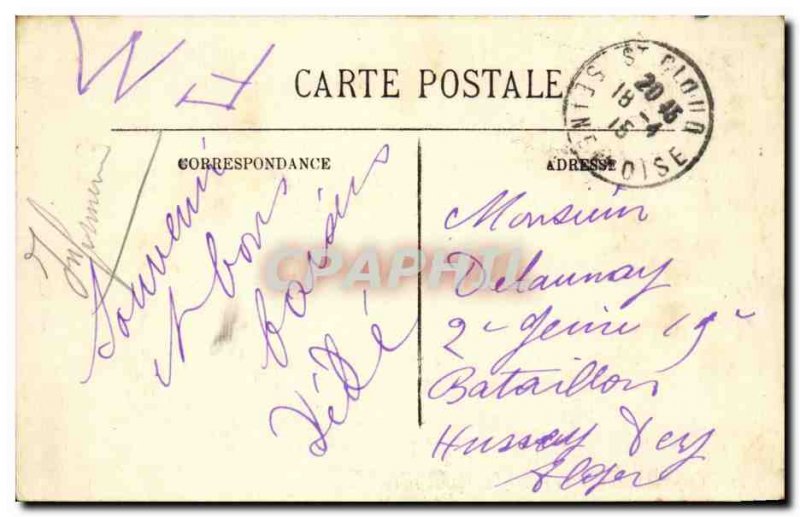 CARTE POSTALE
ST CLOUD
SEINE ET OISE
20 45
18 - 4
15
CORRESPONDANCE
Souvenir
et bons
baisers
Dédé
ADRESSE
Monsieur
Delaunay
2e Génie 19e
Bataillon
Hussey Dey
Alger
CPAPHIL